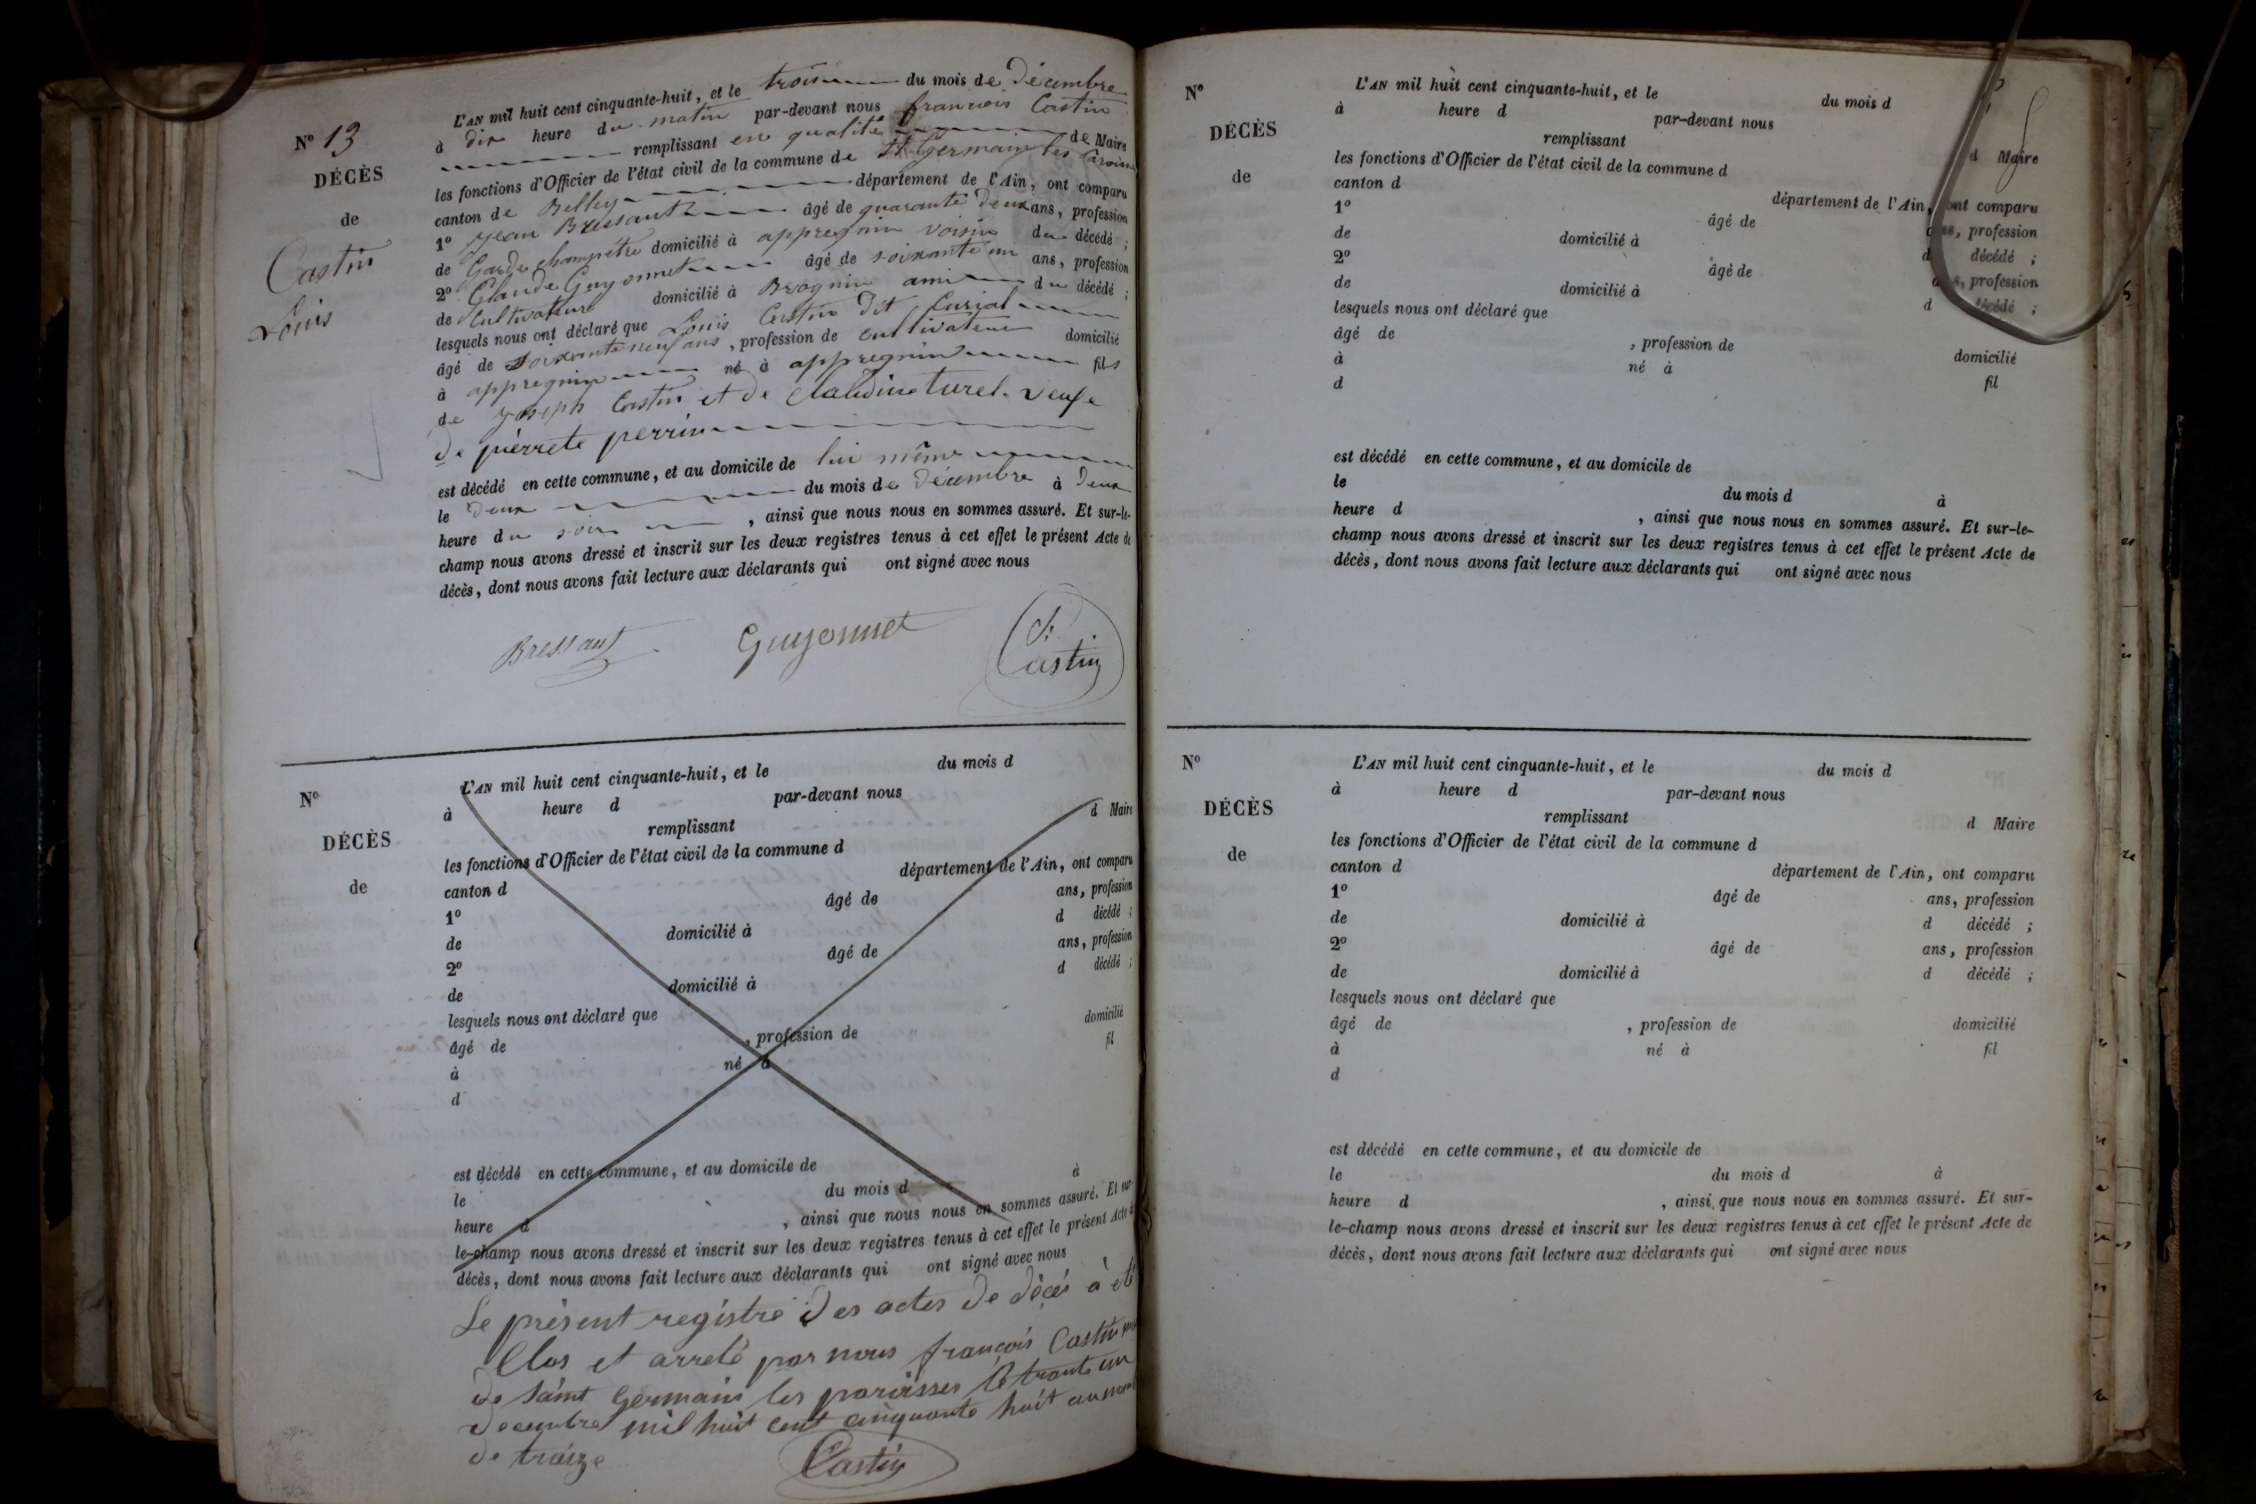 Nº 13
DÉCÈS
de
Castin
Louis
L'AN mil huit cent cinquante-huit, et le trois du mois de Décembre
à dix heure du matin par-devant nous françois Castin
remplissant en qualité de Maire
les fonctions d'Officier de l'état civil de la commune de St Germain les
canton de Belley département de l'Ain, ont comparu
1º Jean Bressant âgé de quarante deux ans, profession
de Garde champêtre domicilié à appregnin voisin du décédé ;
2º Claude Guyonnet âgé de soixante un ans, profession
de Cultivateur domicilié à Brognin ami du décédé ;
lesquels nous ont déclaré que Louis Castin dit
âgé de soixante neuf ans, profession de cultivateur domicilié
à appregnin né à appregnin fils
de Joseph Castin et de Claudine turel. veuf
de pierrete perrin
est décédé en cette commune, et au domicile de lui même
le deux du mois de décembre à Deux
heure du soir, ainsi que nous nous en sommes assuré. Et sur-le-
champ nous avons dressé et inscrit sur les deux registres tenus à cet effet le présent Acte de
décès, dont nous avons fait lecture aux déclarants qui ont signé avec nous
Bressant Guyonnet Castin
Nº
DÉCÈS
de
L'AN mil huit cent cinquante-huit, et le du mois d
à heure d par-devant nous
remplissant d Maire
les fonctions d'Officier de l'état civil de la commune d
canton d département de l'Ain, ont comparu
1º âgé de ans, profession
de domicilié à d décédé ;
2º âgé de ans, profession
de domicilié à d décédé ;
lesquels nous ont déclaré que
âgé de , profession de domicilié
à né à fil
d
est décédé en cette commune, et au domicile de
le du mois d à
heure d , ainsi que nous nous en sommes assuré. Et sur-
le-champ nous avons dressé et inscrit sur les deux registres tenus à cet effet le présent Acte d
décès, dont nous avons fait lecture aux déclarants qui ont signé avec nous
Le présent registre des actes de décès à eté
Clos et arreté par nous françois Castin
de Saint Germain les paroisses le trante un
decembre mil huit cent cinquante huit au
de traize
Castin
Nº
DÉCÈS
de
L'AN mil huit cent cinquante-huit, et le du mois d
à heure d par-devant nous
remplissant d Maire
les fonctions d'Officier de l'état civil de la commune d
canton d département de l'Ain, ont comparu
1º âgé de ans, profession
de domicilié à d décédé ;
2º âgé de ans, profession
de domicilié à d décédé ;
lesquels nous ont déclaré que
âgé de , profession de domicilié
à né à fil
d
est décédé en cette commune, et au domicile de
le du mois d à
heure d , ainsi que nous nous en sommes assuré. Et sur-le-
champ nous avons dressé et inscrit sur les deux registres tenus à cet effet le présent Acte de
décès, dont nous avons fait lecture aux déclarants qui ont signé avec nous
Nº
DÉCÈS
de
L'AN mil huit cent cinquante-huit, et le du mois d
à heure d par-devant nous
remplissant d Maire
les fonctions d'Officier de l'état civil de la commune d
canton d département de l'Ain, ont comparu
1º âgé de ans, profession
de domicilié à d décédé ;
2º âgé de ans, profession
de domicilié à d décédé ;
lesquels nous ont déclaré que
âgé de , profession de domicilié
à né à fil
d
est décédé en cette commune, et au domicile de
le du mois d à
heure d , ainsi que nous nous en sommes assuré. Et sur-
le-champ nous avons dressé et inscrit sur les deux registres tenus à cet effet le présent Acte de
décès, dont nous avons fait lecture aux déclarants qui ont signé avec nous